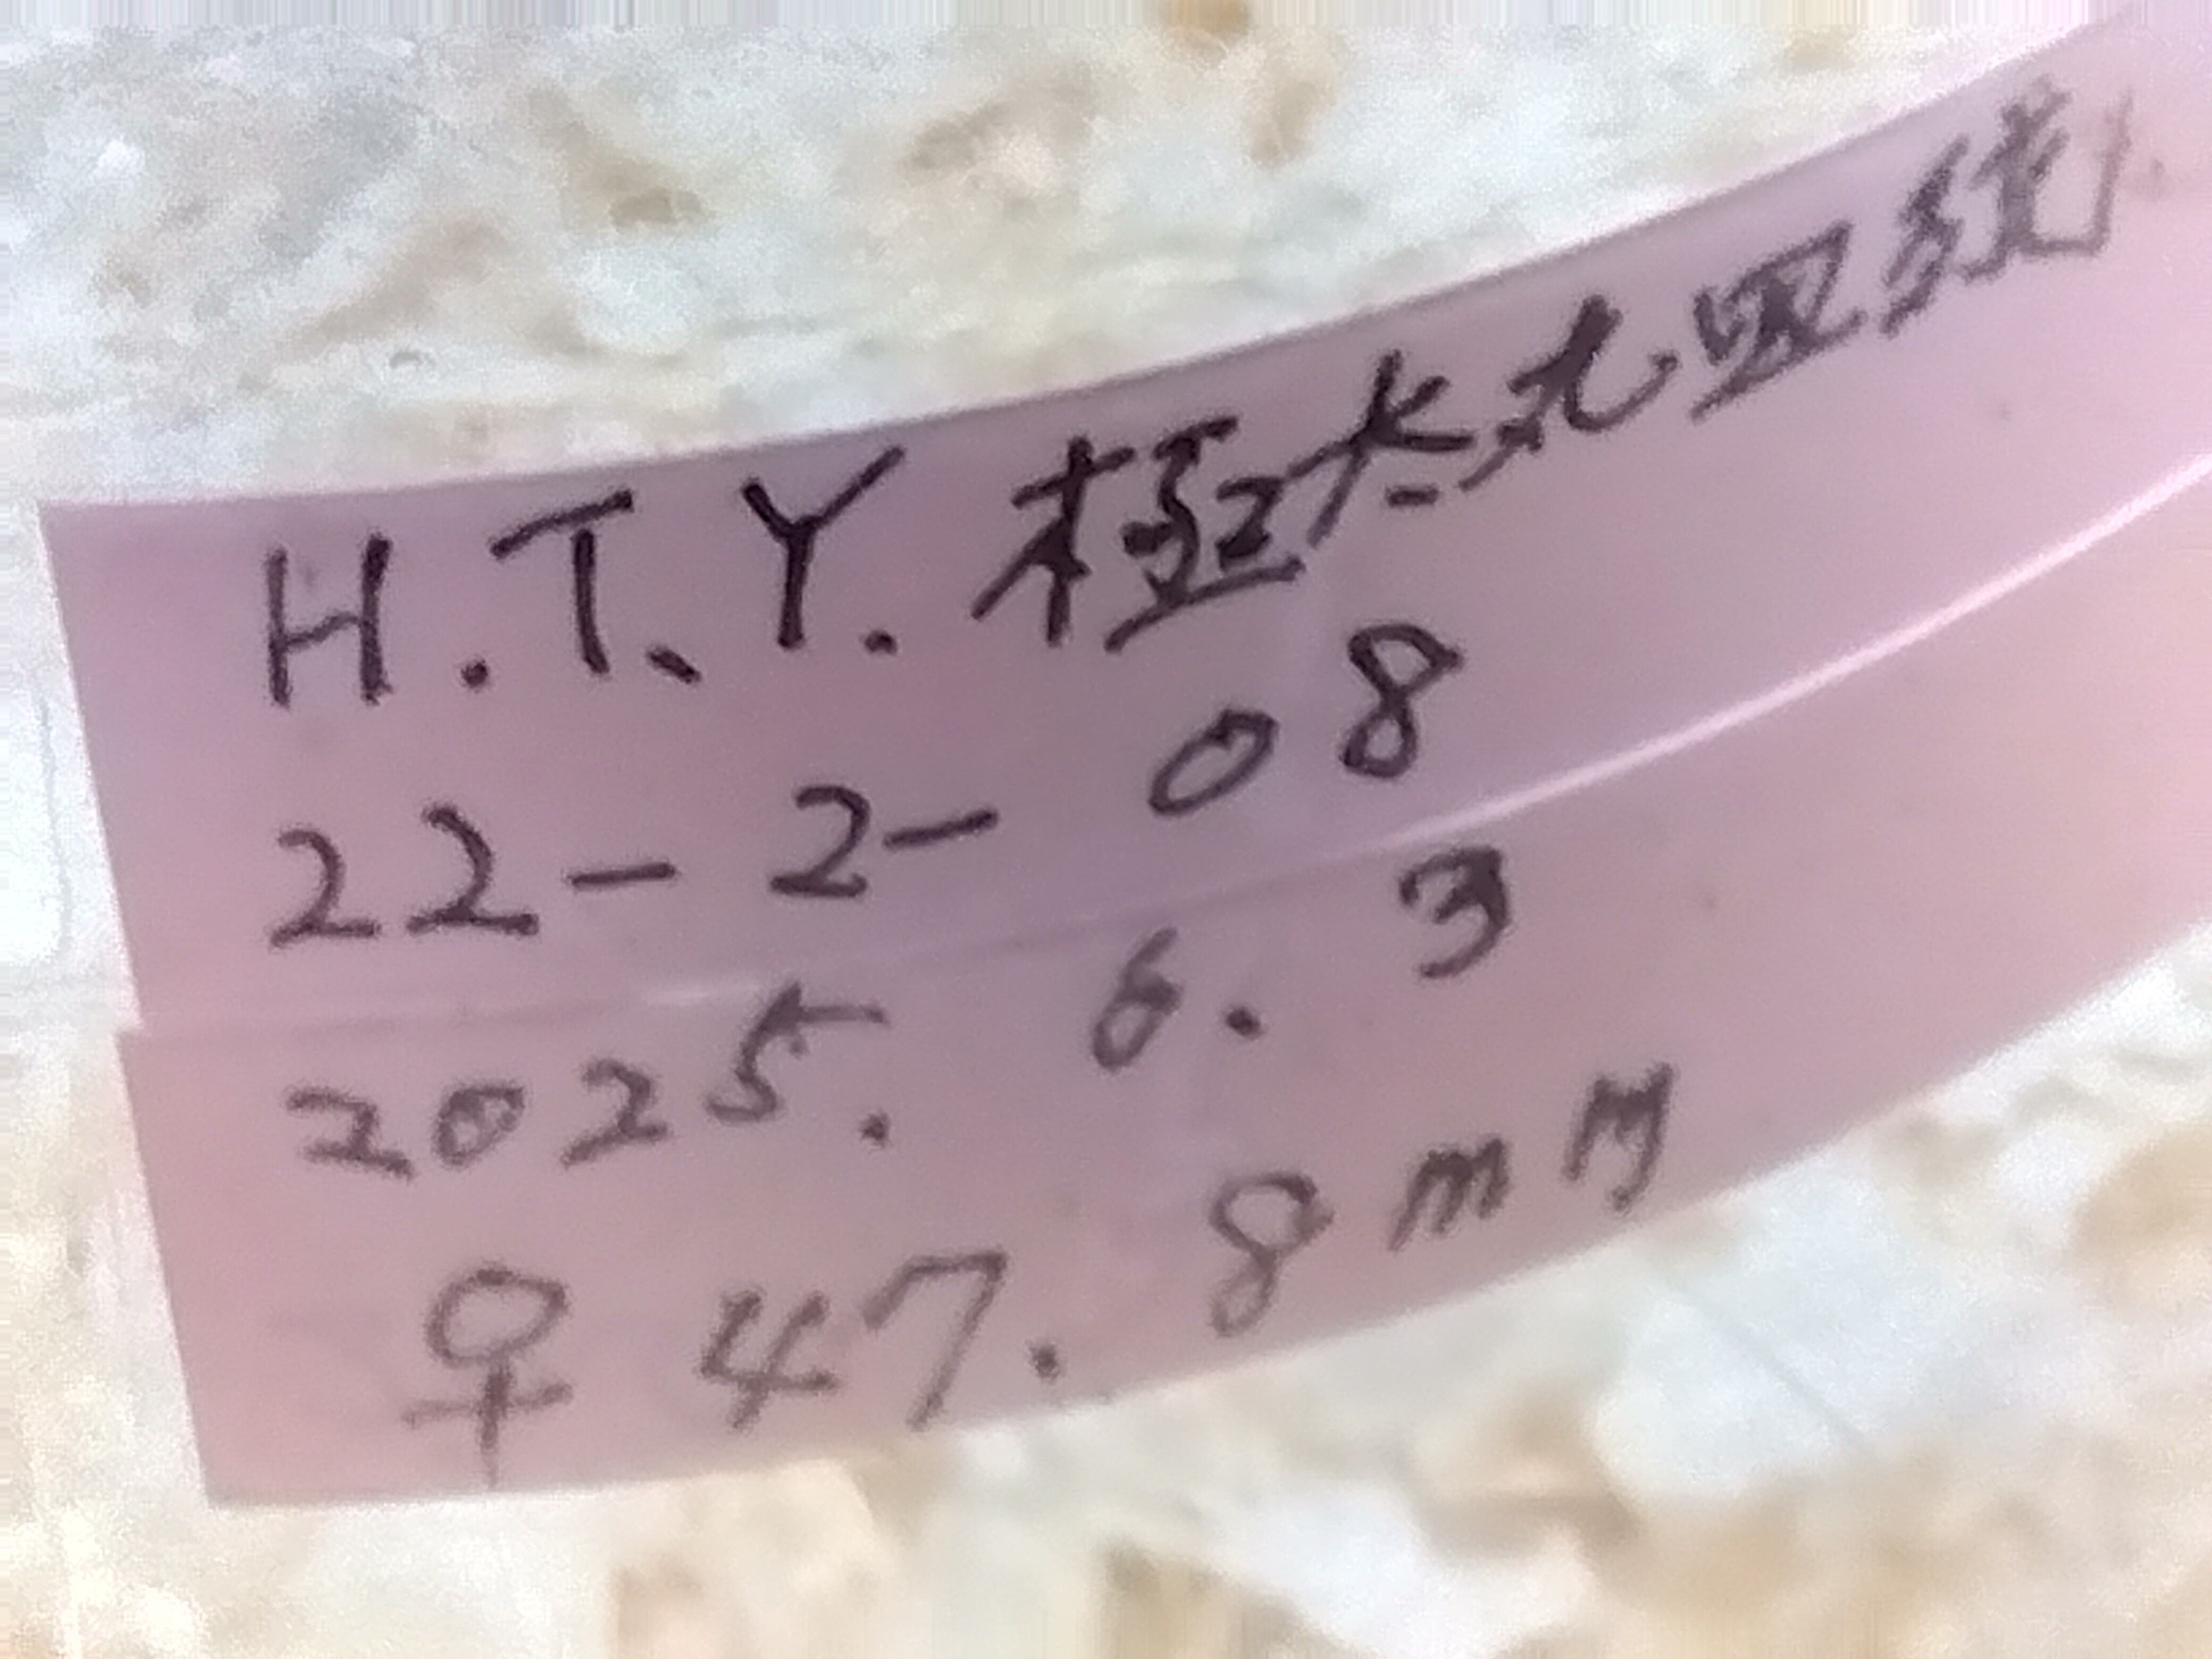 H.T.Y.極太血統
22-2-08
2025.6.3
♀47.8mm